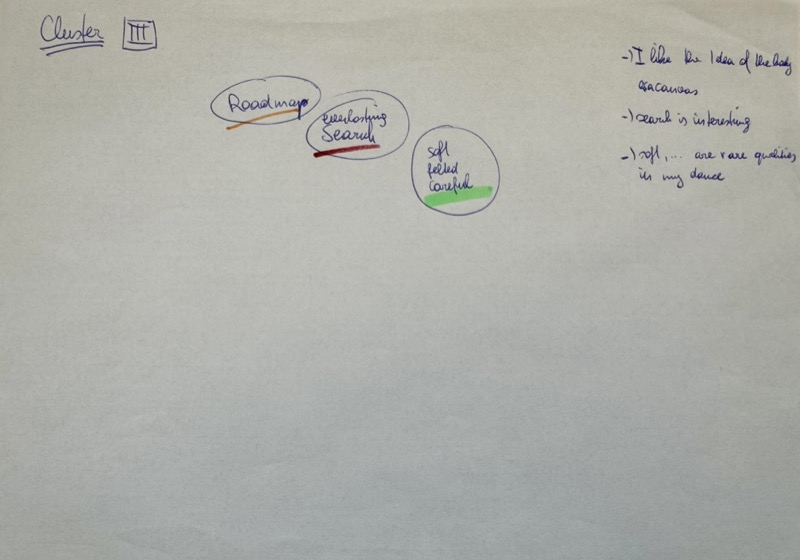 Cluster III
Roadmap
everlasting
Search
soft
felted
careful
-) I like the Idea of the body
as a canvas
-) search is interesting
-) soft, ... are rare qualities
in my dance